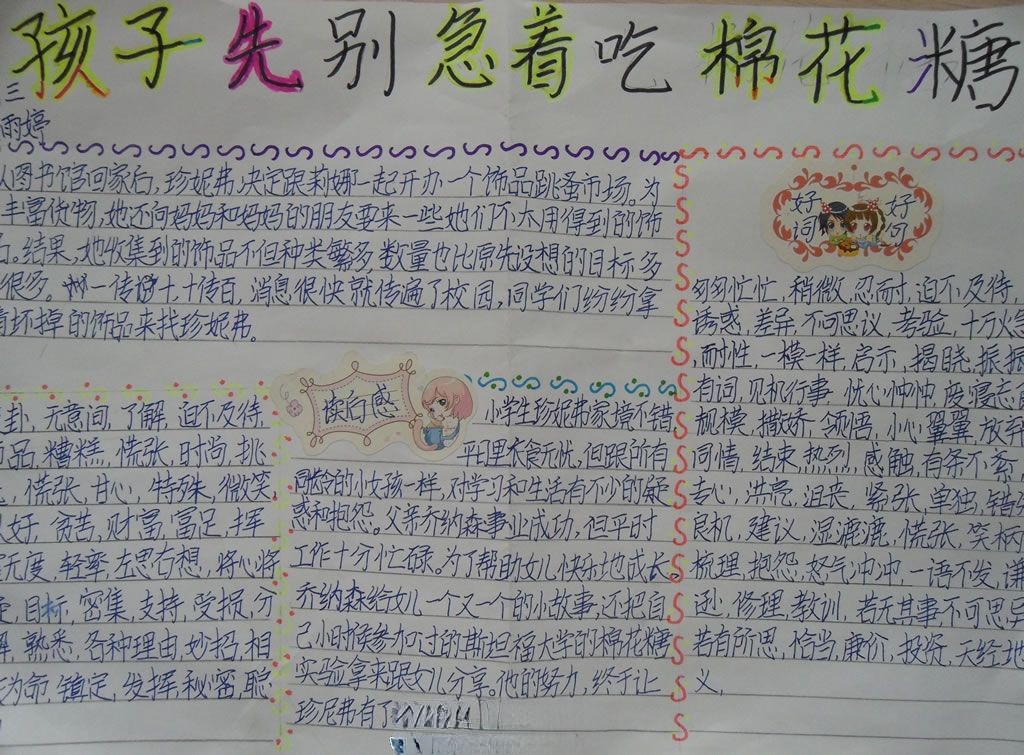 孩子先别急着吃棉花糖
三
雨婷
从图书馆回家后,珍妮弗决定跟莉娜一起开办一个饰品跳蚤市场。为
丰富货物,她还问妈妈和妈妈的朋友要来一些她们不大用得到的饰
品。结果,她收集到的饰品不但种类繁多,数量也比原先设想的目标多
很多。一传十,十传百,消息很快就传遍了校园,同学们纷纷拿
着坏掉的饰品来找珍妮弗。
好词 好句
匆匆忙忙,稍微,忍耐,迫不及待,
诱惑,差异,不可思议,考验,十万火急
,耐性,一模一样,启示,揭晓,振振
有词,见机行事,忧心忡忡,废寝忘食
规模,撒娇,领悟,小心翼翼,放弃
同情,结束,热烈,感触,有条不紊,
专心,洪亮,沮丧,紧张,单独,错
良机,建议,湿漉漉,慌张,笑柄
梳理,抱怨,怒气冲冲,一语不发,谦
逊,修理,教训,若无其事,不可思异
若有所思,恰当,廉价,投资,天经地
义,
卦,无意间,了解,迫不及待,
品,糟糕,慌张,时尚,挑
,慌张,甘心,特殊,微笑
好,贫苦,财富,富足,挥
无度,轻率,左思右想,将心将
,目标,密集,支持,受损,分
解,熟悉,各种理由,妙招,相
为命,镇定,发挥,秘密,聪
读后感
小学生珍妮弗家境不错
平日里衣食无忧,但跟所有
同龄的小女孩一样,对学习和生活有不少的疑
惑和抱怨。父亲乔纳森事业成功,但平时
工作十分忙碌。为了帮助女儿快乐地成长。
乔纳森给女儿一个又一个的小故事;还把自
己小时候参加过的斯坦福大学的棉花糖
实验拿来跟女儿分享。他的努力,终于让
珍尼弗有了